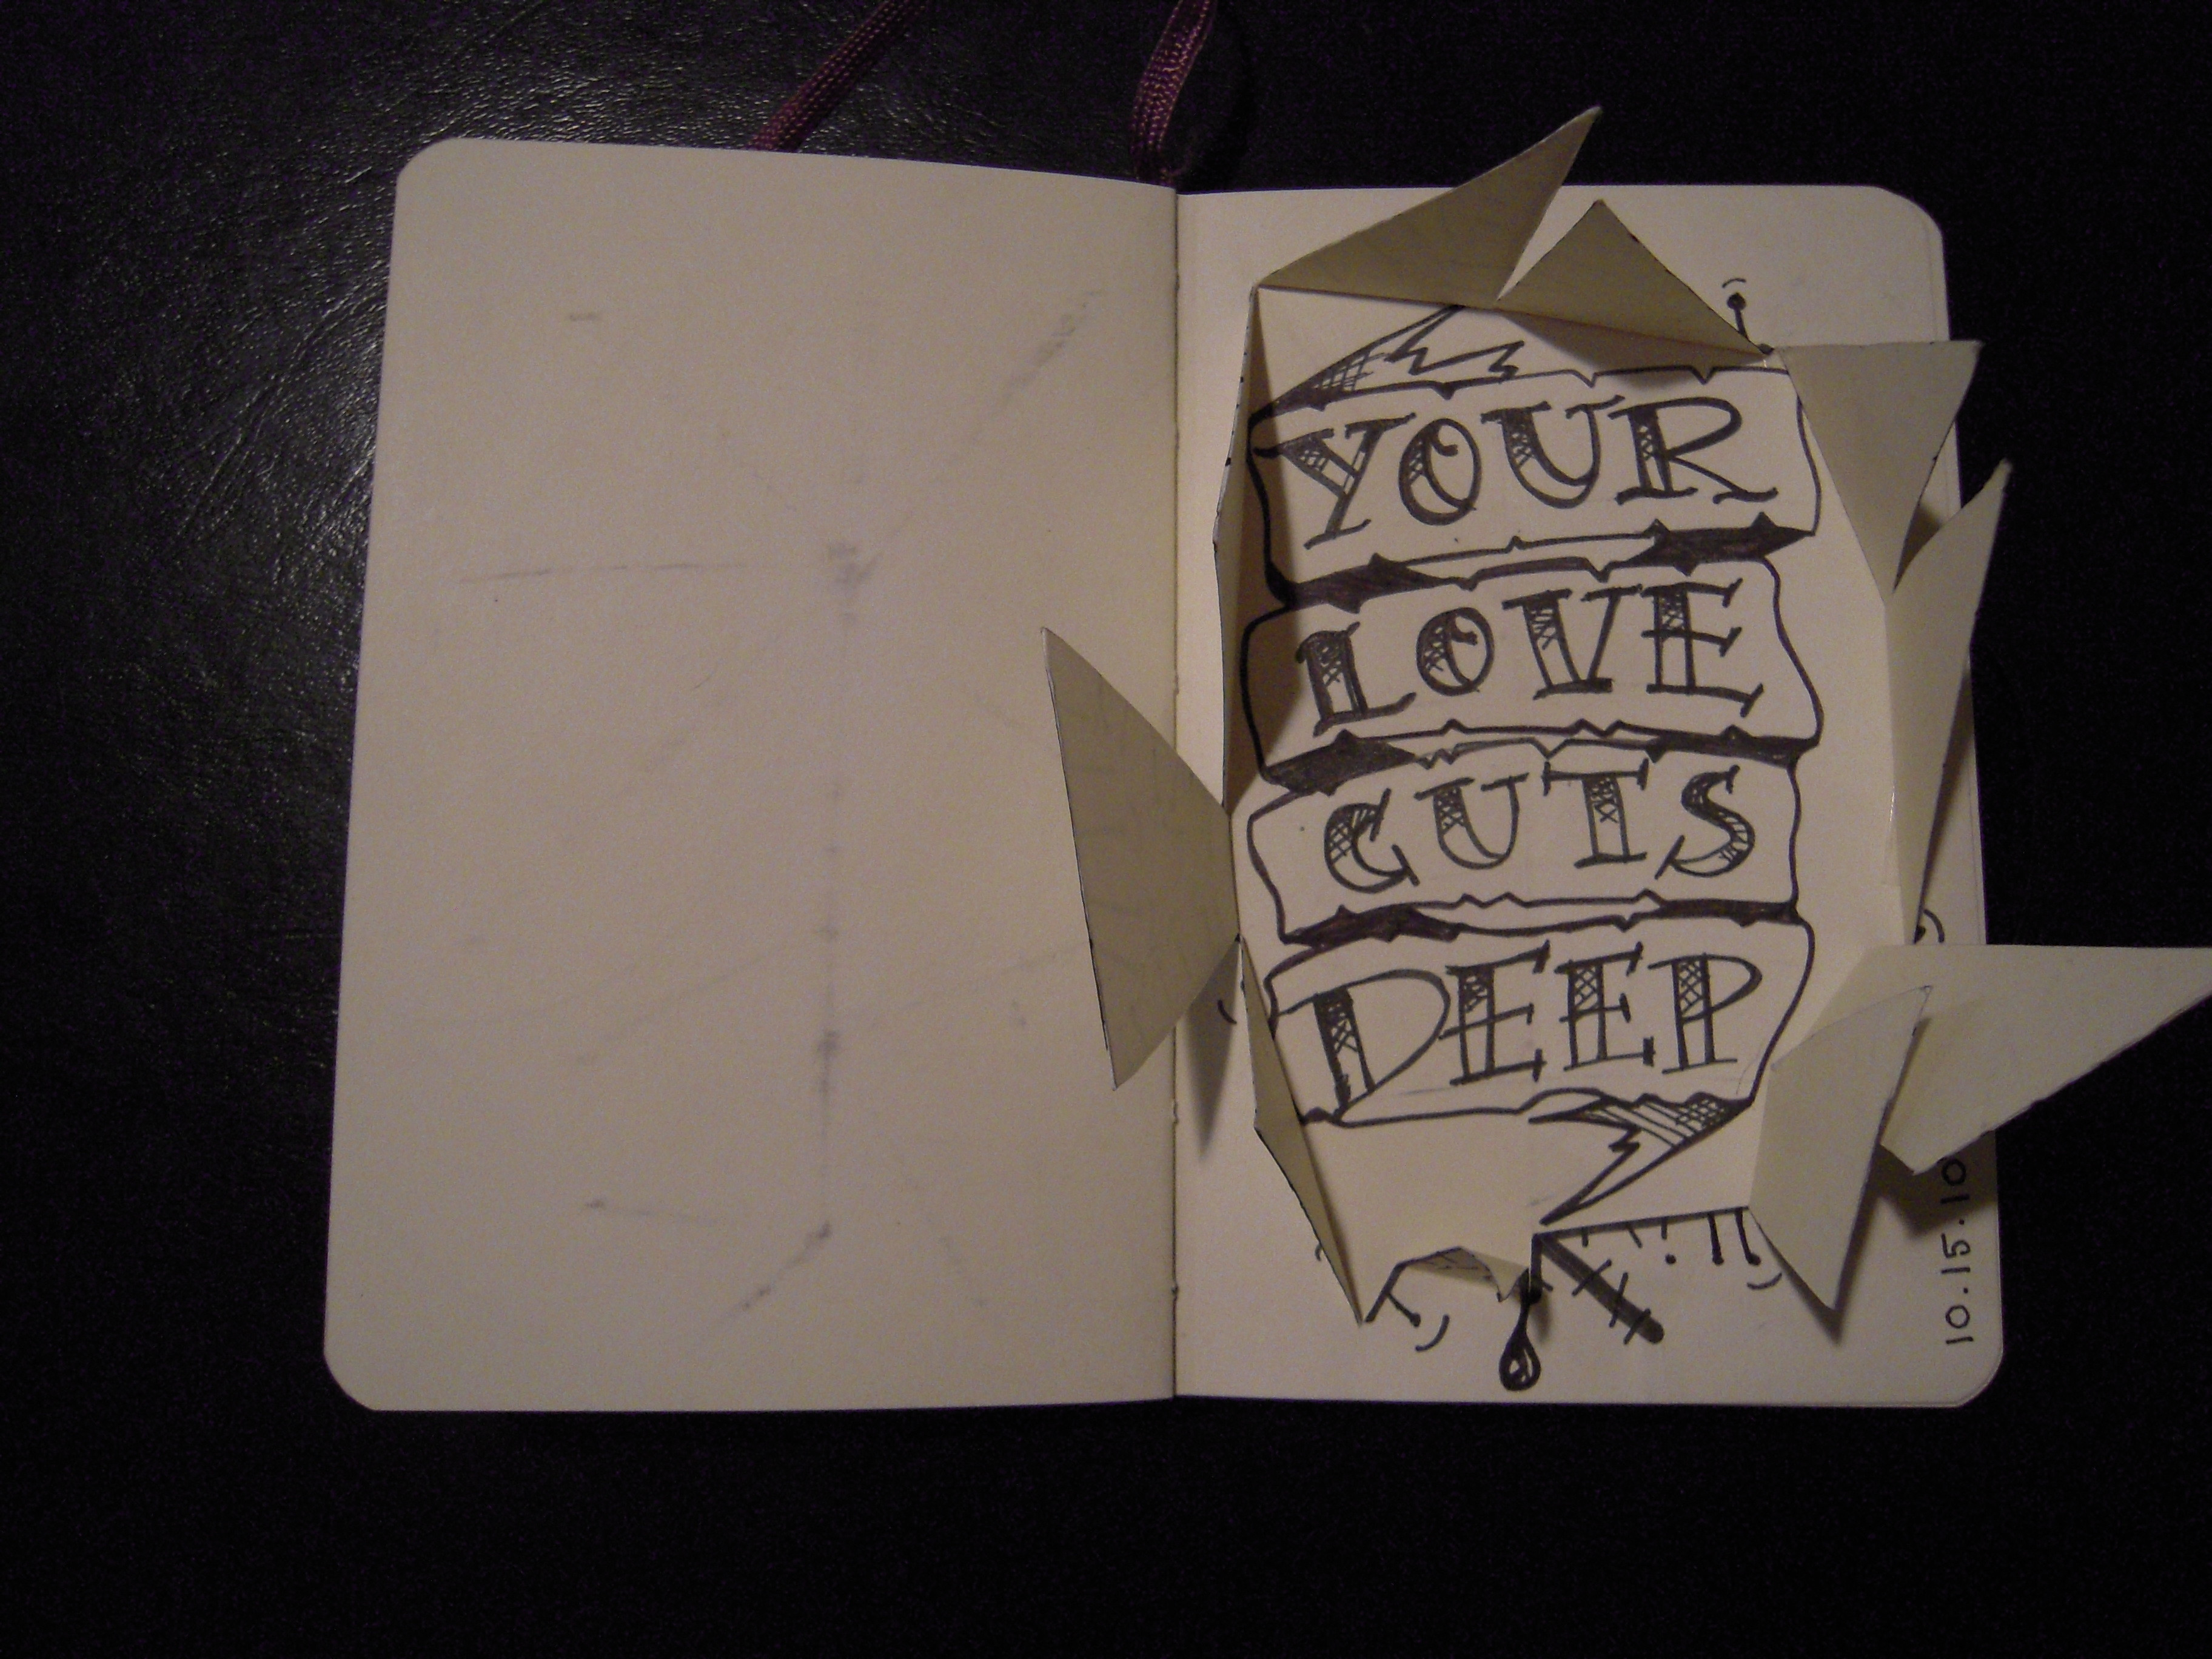 YOUR
LOVE
CUTS
DEEP
10.15.10